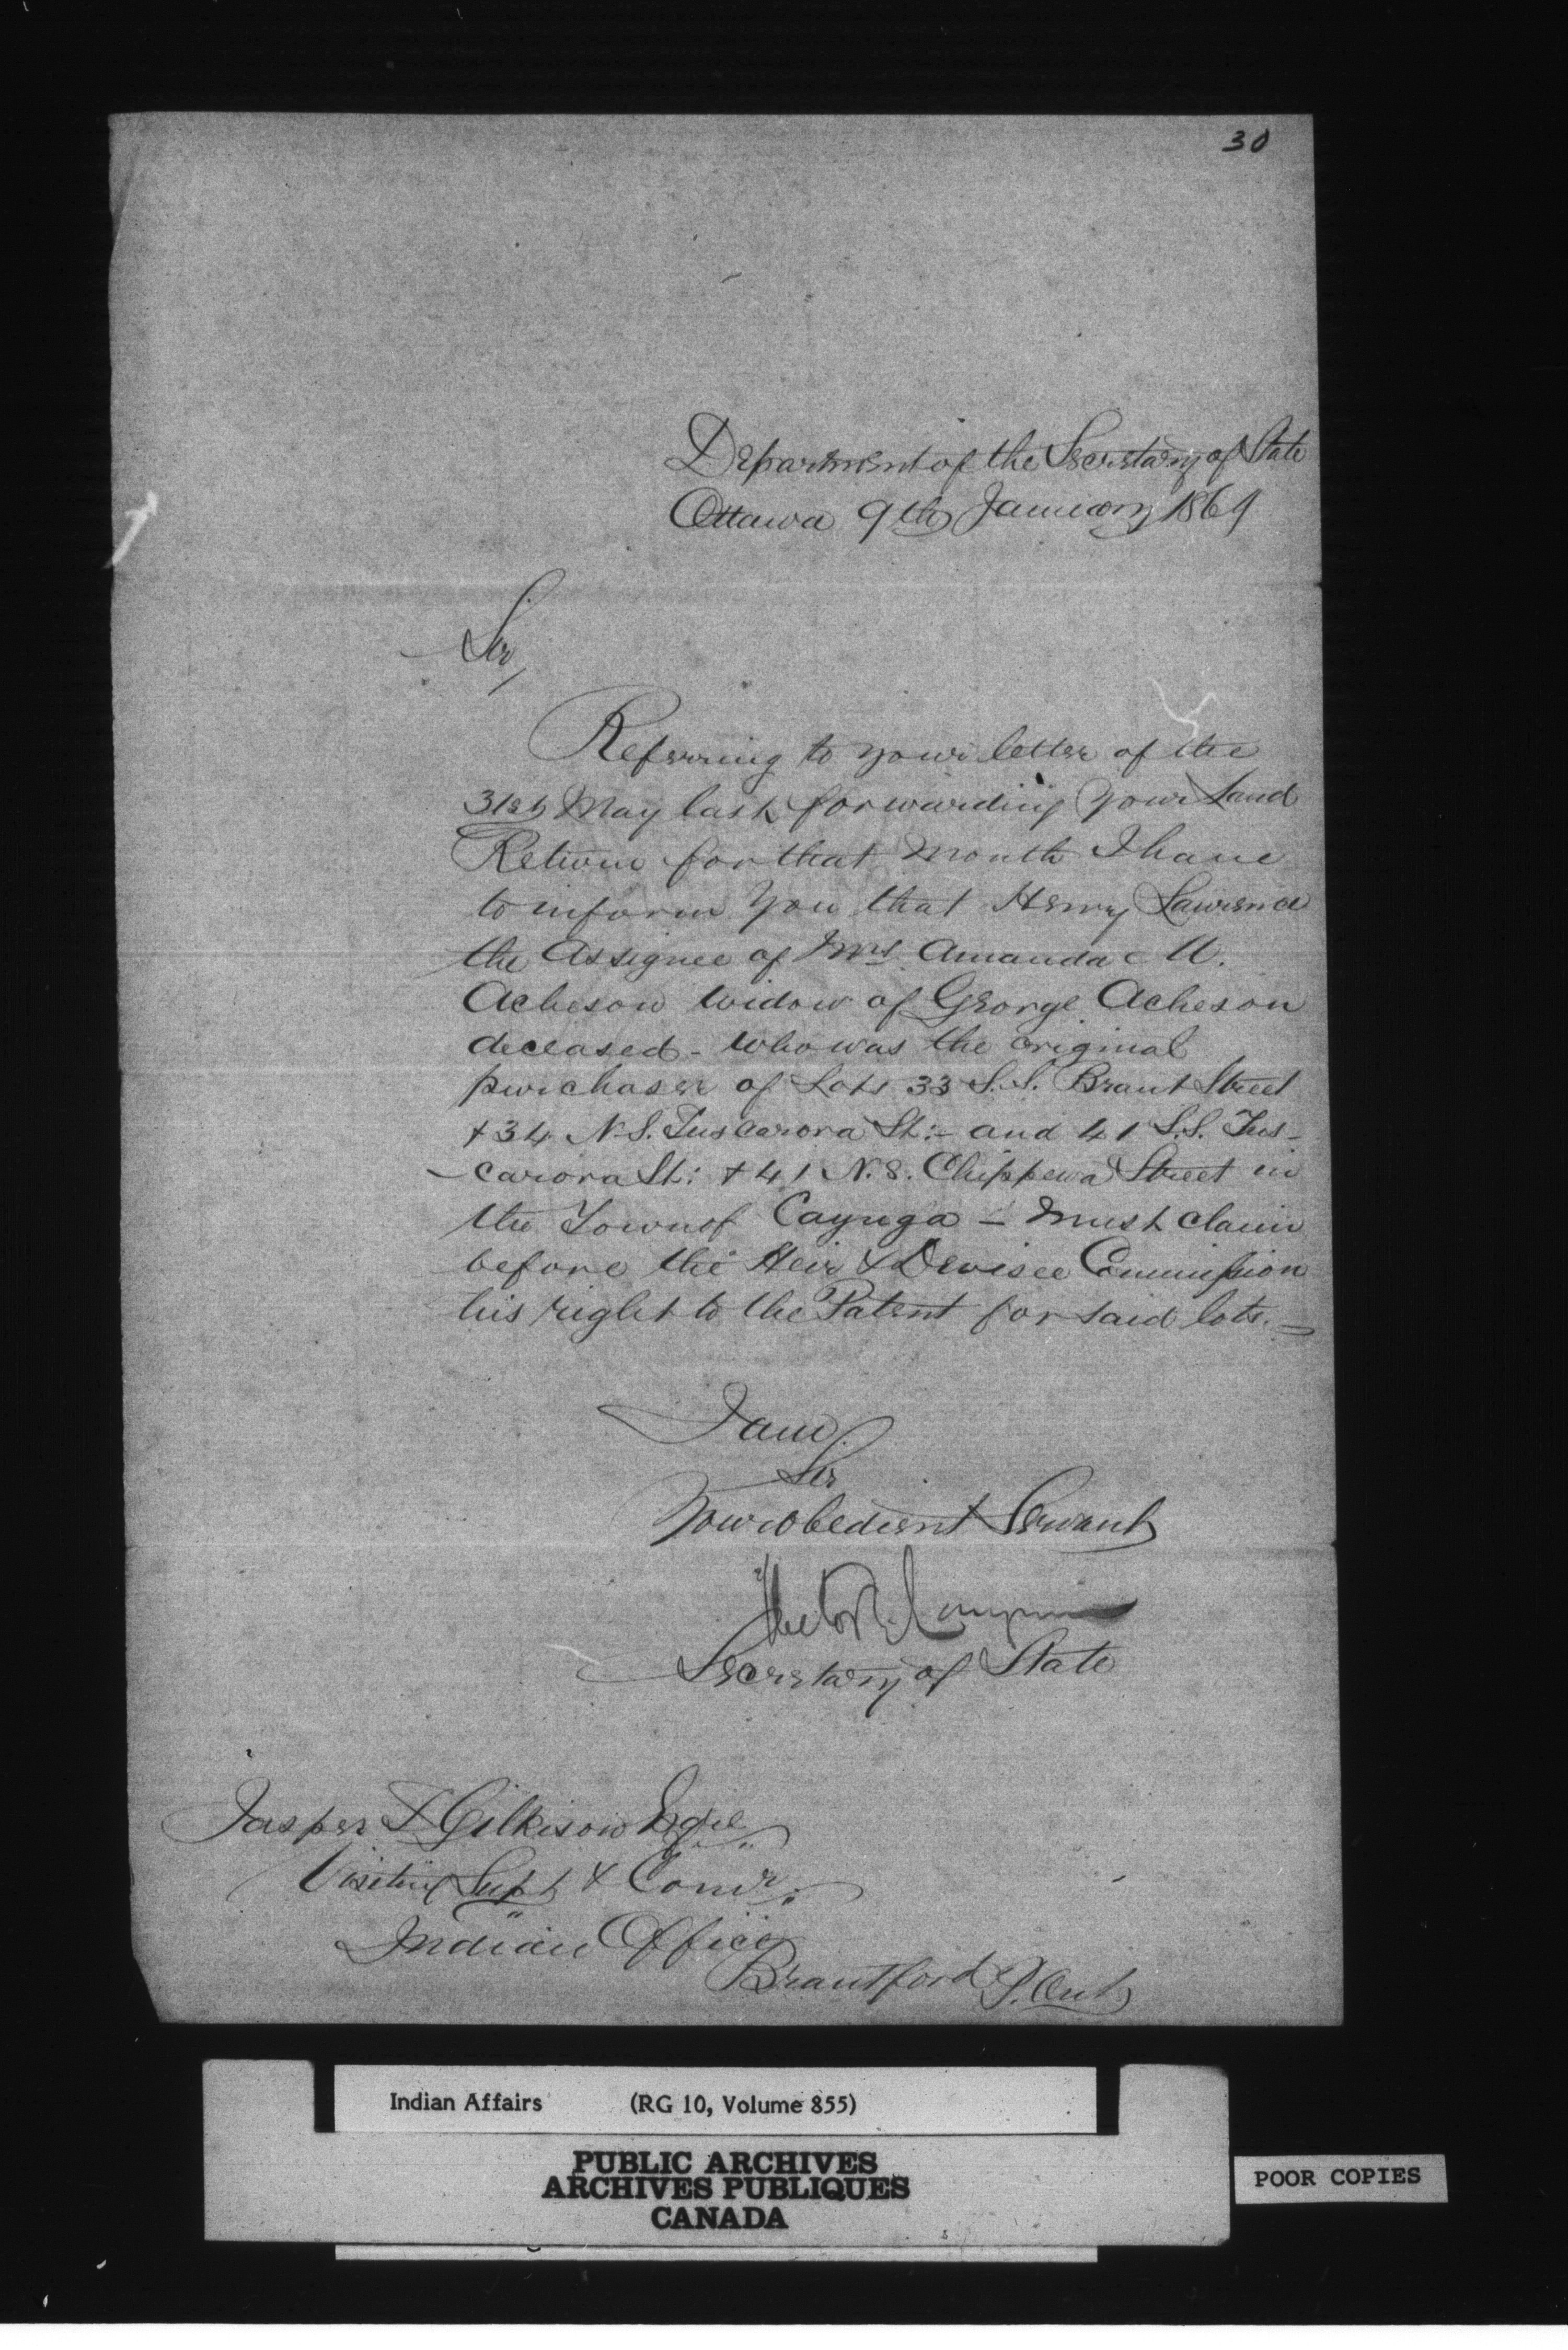 30
Department of the Secretary of State
Ottawa 9th January 1869
Sir,
Referring to your letter of the
31st May last forwarding your Land
Return for that Month I have
to inform you that Henry Lawrence
the Assignee of Mrs. Amanda M.
Acheson widow of George Acheson
deceased - who was the original
purchaser of Lots 33 S.S. Brant Street
+ 34 N.S. Tuscarora St:- and 41 S.S. Tus-
-carora St: + 41 N.S. Chippewa Street in
the Town of Cayuga - must claim
before the Heir & Devisee Commission
his right to the Patent for said lots. =
I am
Sir
Your obedient Servant
Hector L. Langevin
Secretary of State
Jasper T Gilkison Esqre
Visiting Supt & Comr.
Indian Office
Brantford P. Ont
Indian Affairs (RG 10, Volume 855)
PUBLIC ARCHIVES
ARCHIVES PUBLIQUES
CANADA
POOR COPIES